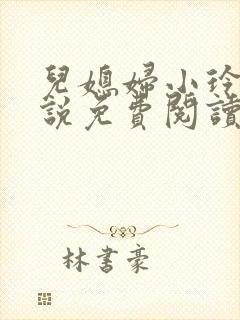 兒媳婦小玲
說免費閱讀
林書豪